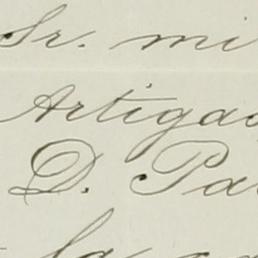 Sr. mi
Artigas
D. Pa
la